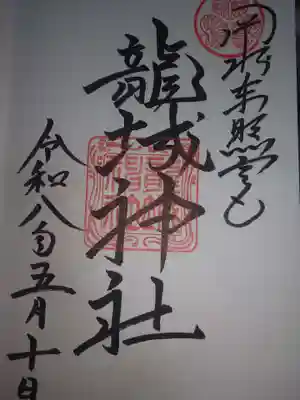 岡崎東照宮
龍城神社
令和八年五月十日